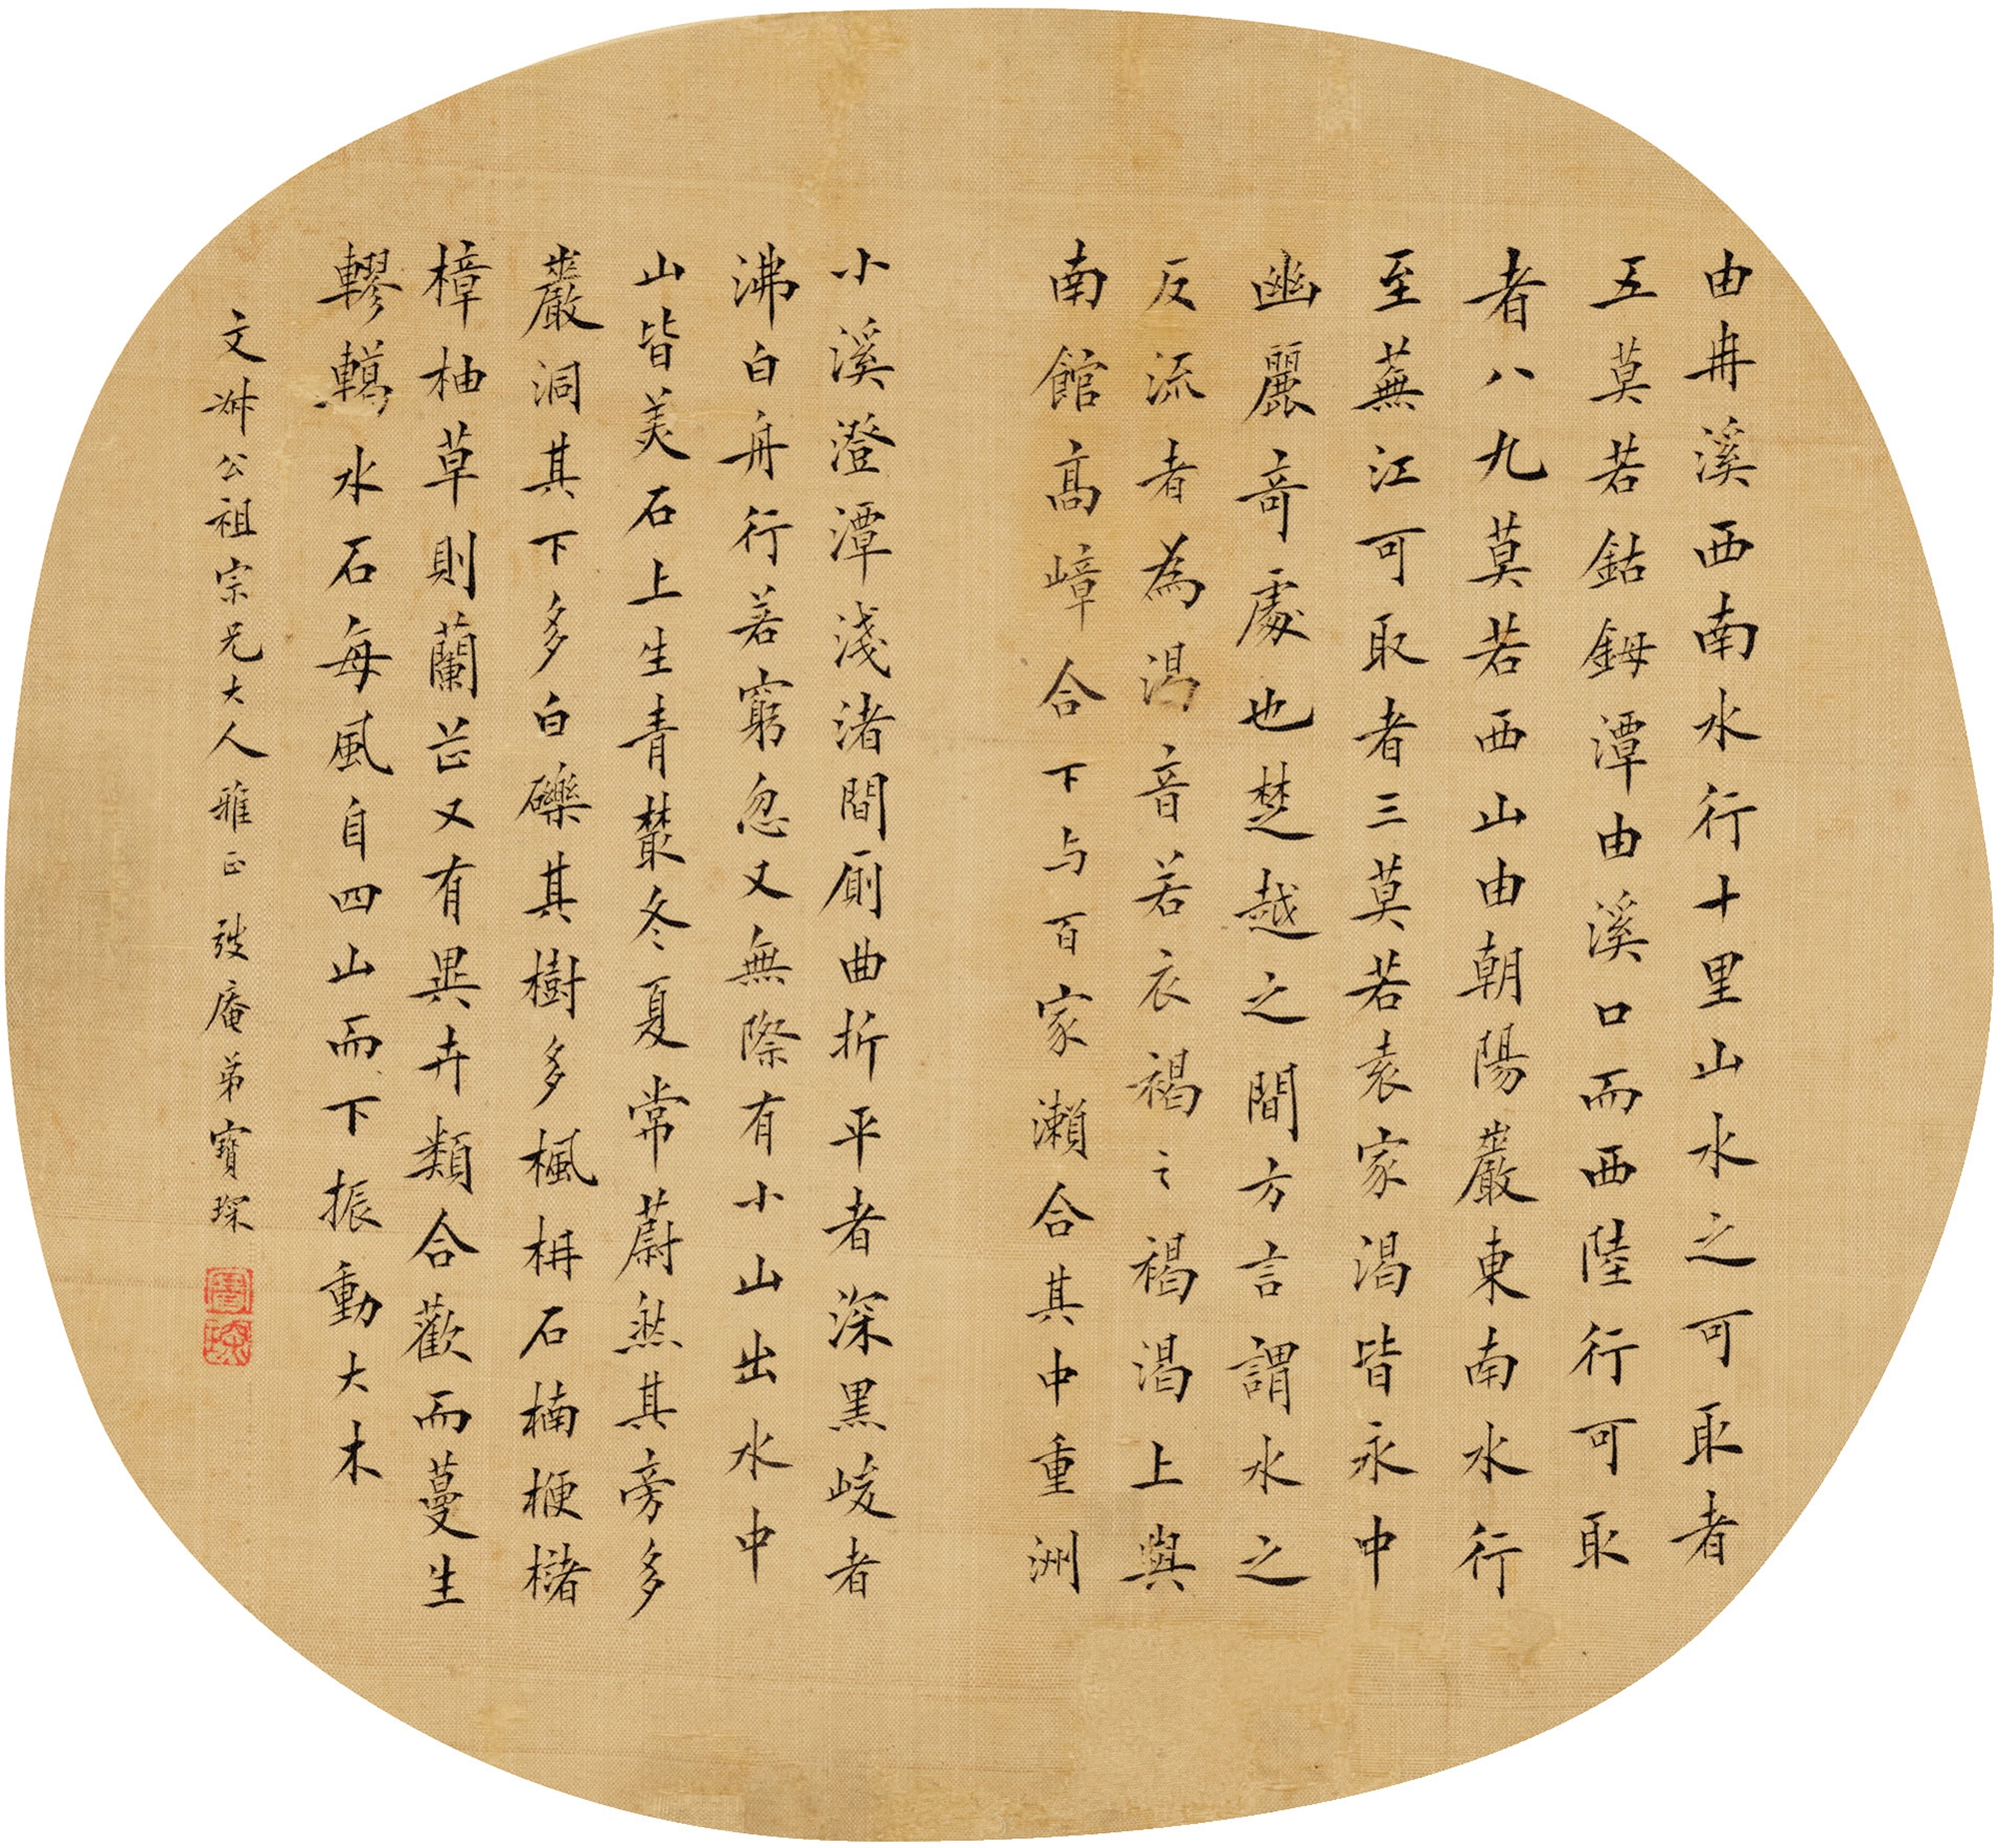 由冉溪西南水行十里山水之可取者
五莫若鈷鉧潭由溪口而西陸行可取
者八九莫若西山由朝陽巖東南水行
至蕪江可取者三莫若袁家渴皆永中
幽麗奇處也楚越之間方言謂水之
反流者為渴音若衣褐之褐渴上與
南館高嶂合下与百家瀨合其中重洲
小溪澄潭淺渚間廁曲折平者深黑峻者
沸白舟行若窮忽又無際有小山出水中
山皆美石上生青叢冬夏常蔚然其旁多
巖洞其下多白礫其樹多楓枏石楠楩櫧
樟柚草則蘭芷又有異卉類合歡而蔓生
轇轕水石每風自四山而下振動大木
文叔公祖宗兄大人雅正弢庵弟寶琛
寶琛